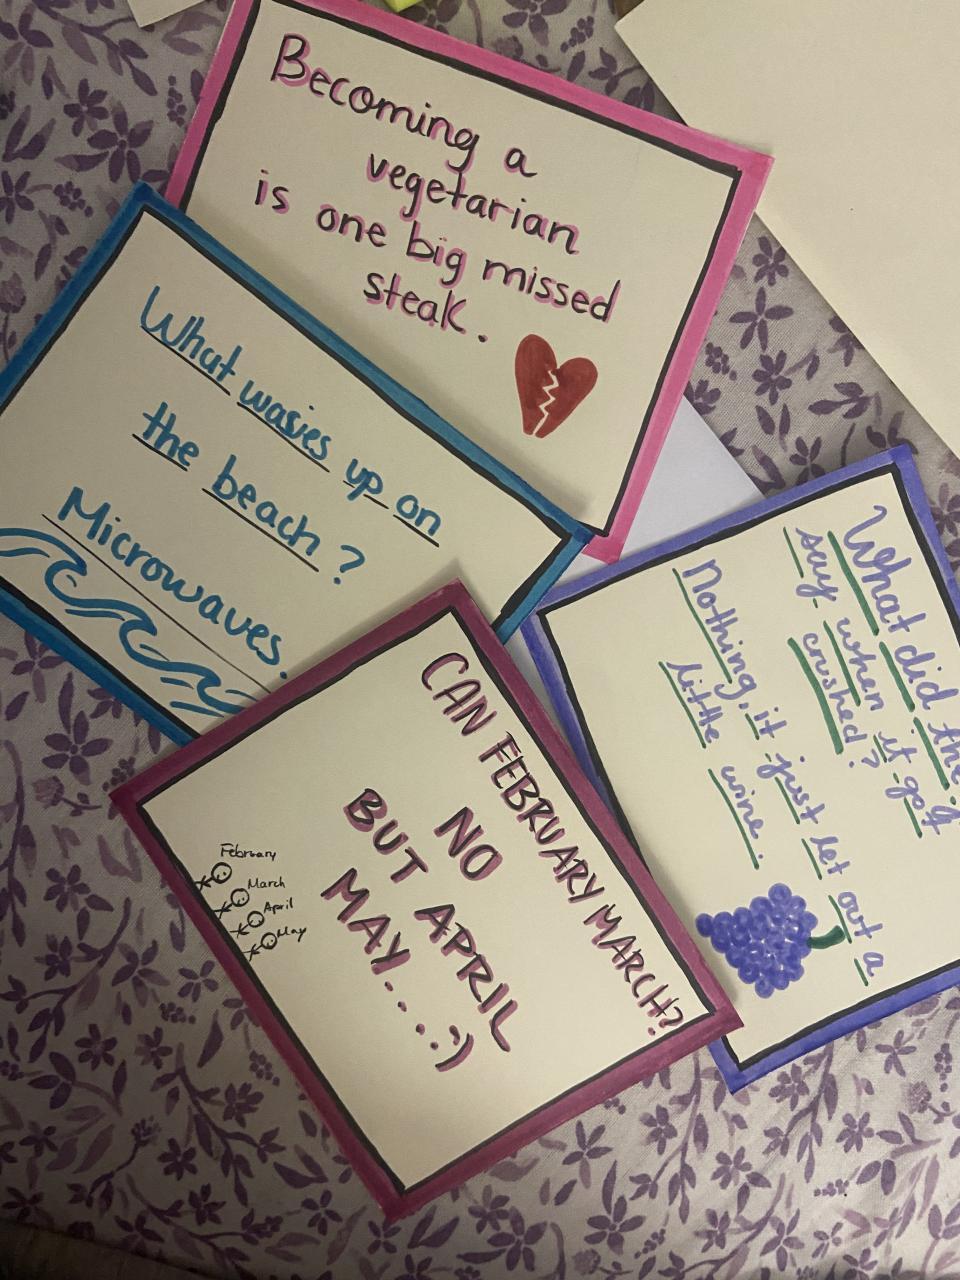 Becoming a
vegetarian
is one big missed
steak.
What wasies up on
the beach?
Microwaves.
What did the
say when it got
crushed?
Nothing, it just let out a
little wine.
CAN FEBRUARY MARCH?
NO
BUT APRIL
MAY....:)
February
March
April
May